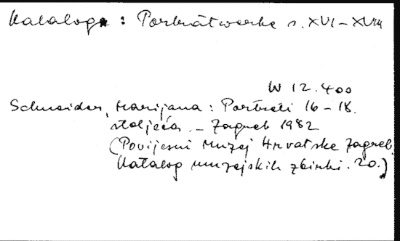 Kataloge: Porträtwerke s. XVI-XVIII
W 12.400
Schneider, Marijana: Portreti 16-18.
stoljeća. - Zagreb 1982
(Povijesni Muzej Hrvatske Zagreb.
Katalog muzejskih zbirki. 20.)